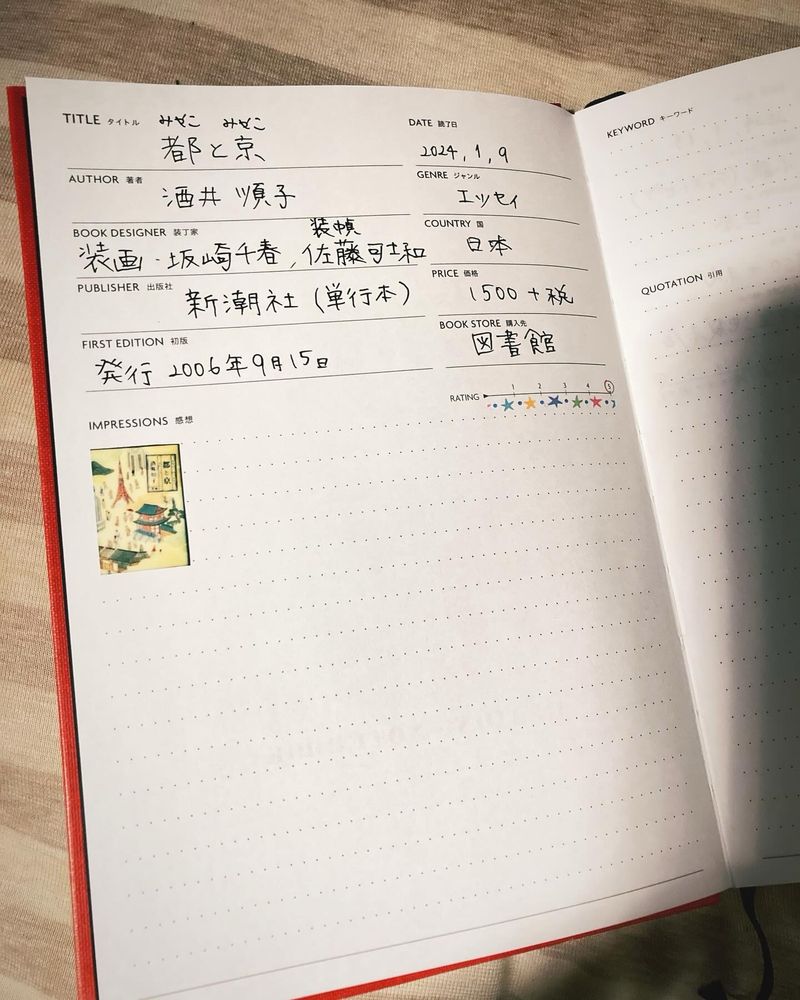 TITLE タイトル みやこ みやこ
都と京
DATE 読了日
2024,1,9
AUTHOR 著者
酒井順子
GENRE ジャンル
エッセイ
BOOK DESIGNER 装丁家 装幀
装画・坂崎千春,佐藤可士和
COUNTRY 国
日本
PUBLISHER 出版社
新潮社(単行本)
PRICE 価格
1500+税
FIRST EDITION 初版
発行 2006年9月15日
BOOK STORE 購入先
図書館
RATING 1 2 3 4 5
IMPRESSIONS 感想
都と京
KEYWORD キーワード
QUOTATION 引用